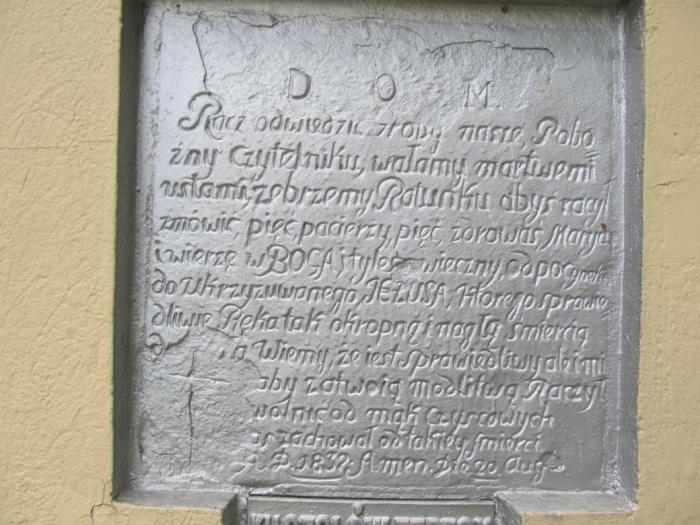 D O M
Racz odwiedzic groby nasze, Pobo
żny Czytelniku, wałamy martwemi
ustami, żebrzemy Ratunku abys raczył
zmówic, pięć, pacierzy, pięć, zdrowas Marya
i wierzę w BOGA, tyles wieczny, odpocynek
do Ukrzyzowanego, JEZUSA, którego sprawie
dliwie Ręka tak okropną i nagłą śmiercią
a Wiemy, że iest sprawiedliwy ale i mi
aby za twoią modlitwą Raczył
wolnić od mąk Czyscowych
as zachował od takiey śmierci
A. D. 1837. Amen. Die 20 Aug